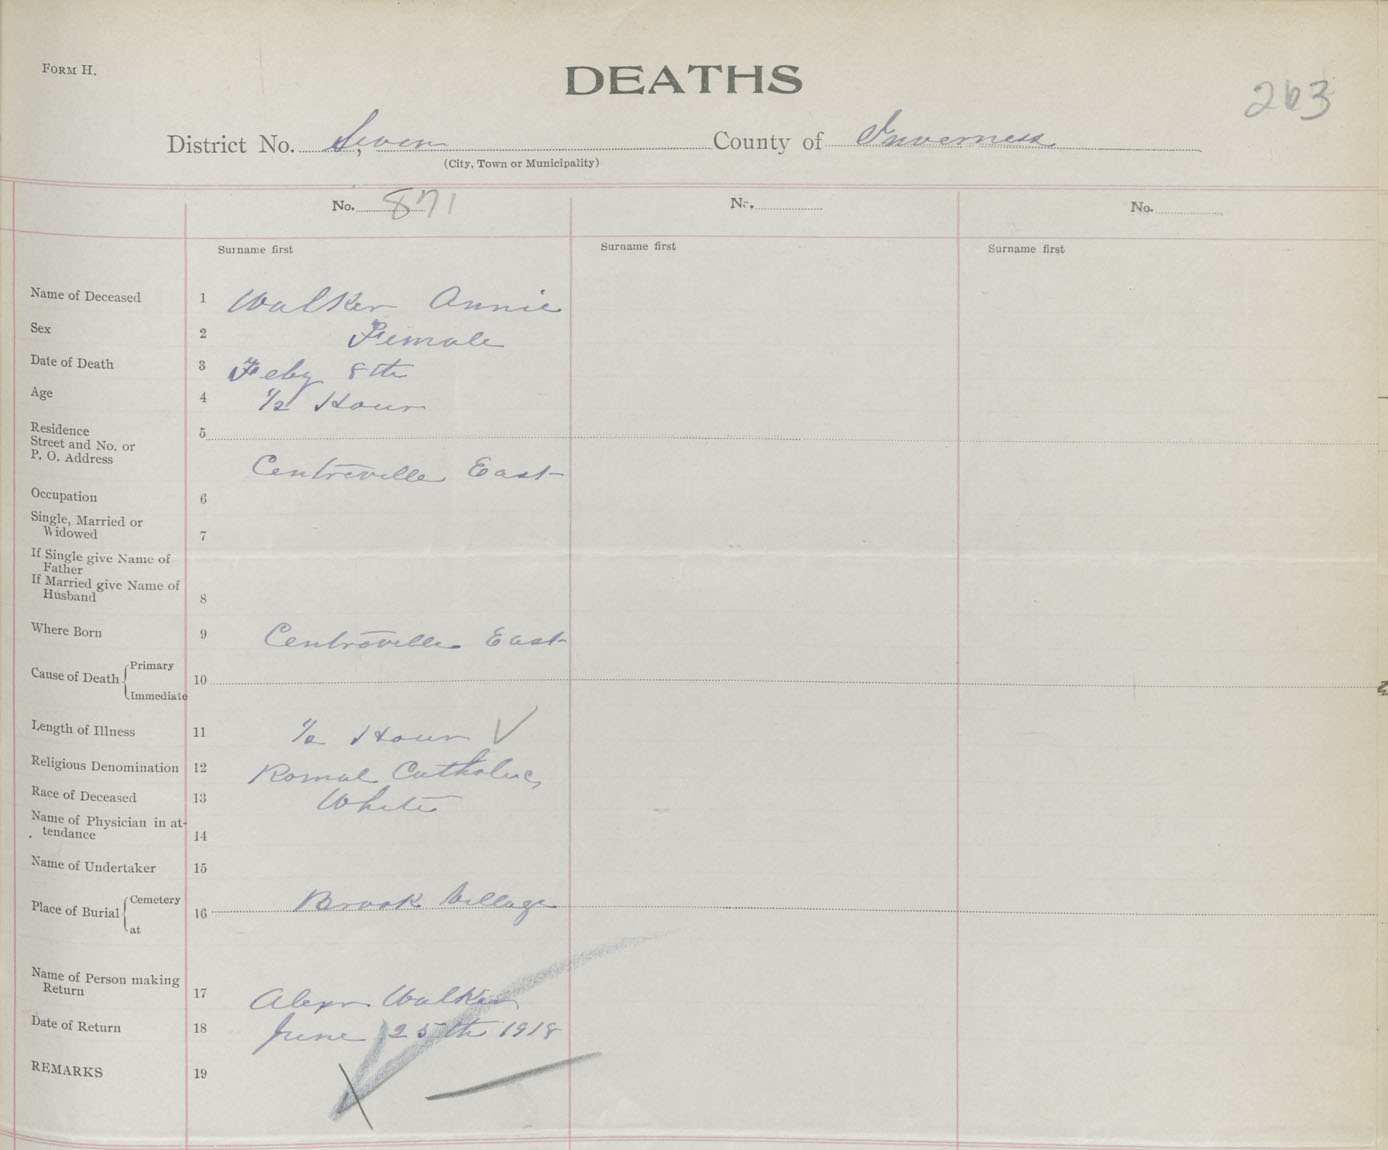 FORM H.
DEATHS
263
District No. Seven County of Inverness
(City, Town or Municipality)
No. 871 No. No.
Surname first Surname first Surname first
Name of Deceased 1 Walker Annie
Sex 2 Female
Date of Death 3 Feby 8th
Age 4 1/2 Hour
Residence 5
Street and No. or
P. O. Address
Centreville East
Occupation 6
Single, Married or
Widowed 7
If Single give Name of
Father
If Married give Name of
Husband 8
Where Born 9 Centreville East
Cause of Death { Primary
10
Immediate
Length of Illness 11 1/2 Hour
Religious Denomination 12 Roman Catholic
Race of Deceased 13 White
Name of Physician in at-
tendance 14
Name of Undertaker 15
Place of Burial { Cemetery
16 Brook Village
at
Name of Person making
Return 17 Alexr Walker
Date of Return 18 June 25th 1918
REMARKS 19